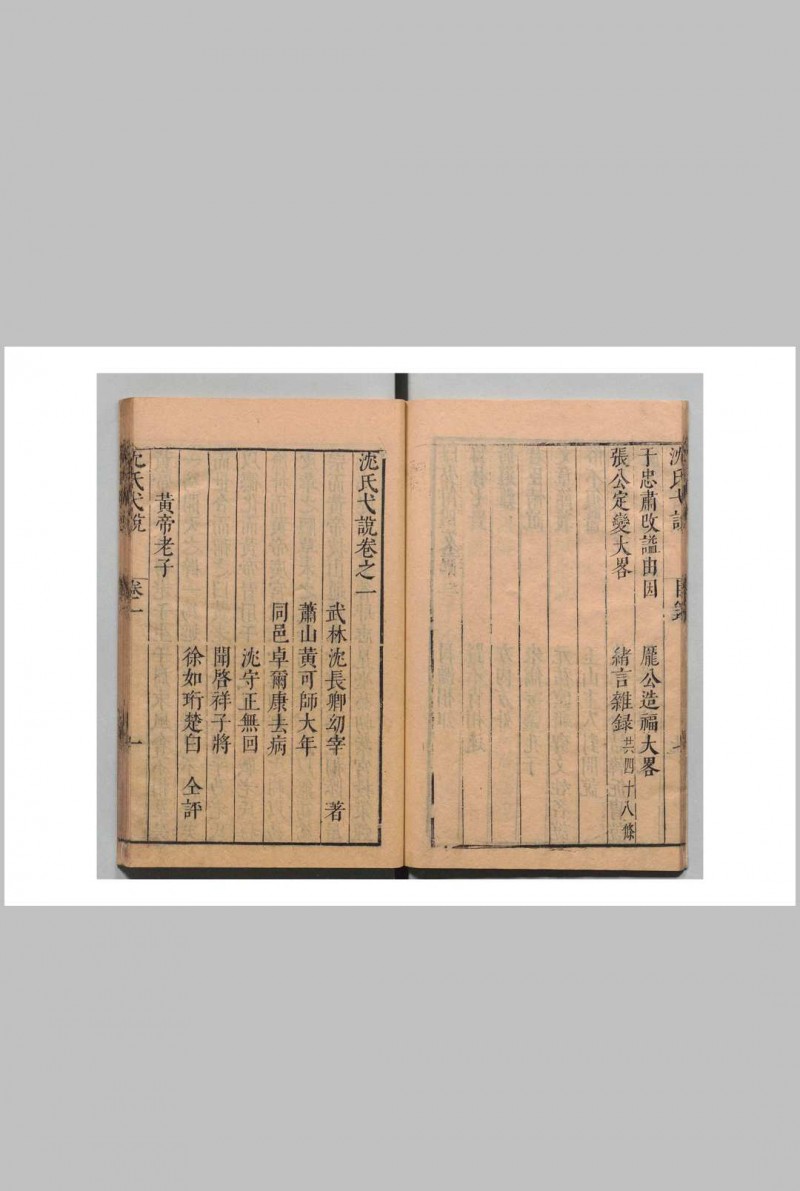 沈氏弋說
目錄
于忠肅改謚由因
龐公造福大畧
張公定變大畧
緒言雜録共四十八條
沈氏弋說卷之一
武林沈長卿幼宰
著
蕭山黃可師大年
同邑卓爾康去病
沈守正無回
聞啓祥子將
徐如珩楚白
仝評
黃帝老子
沈氏弋說
卷一
一